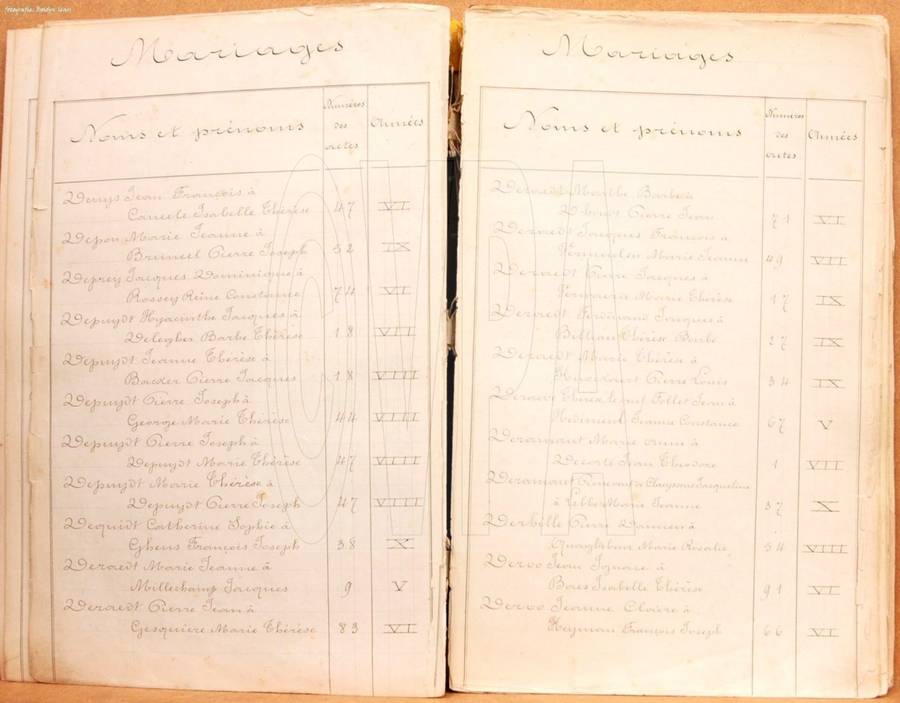 Mariages
Noms et prénoms
Numéros des actes
Années
Denys Jean François à
Isabelle Thérèse 47 VI
Depon Marie Jeanne à
Bruneel Pierre Joseph 52 IX
Deprey Jacques Dominique à
Rossey Reine Constance 74 VI
Depuydt Hyacinthe Jacques à
Delegher Barbe Thérèse 18 VII
Depuydt Jeanne Thérèse à
Backer Pierre Jacques 18 VIII
Depuydt Pierre Joseph à
George Marie Thérèse 44 VIII
Depuydt Pierre Joseph à
Depuydt Marie Thérèse 47 VIII
Depuydt Marie Thérèse à
Depuydt Pierre Joseph 47 VIII
Dequidt Catherine Sophie à
Gheus François Joseph 38 X
Deraedt Marie Jeanne à
Millechamp Jacques 9 V
Deraedt Pierre Jean à
Gesquiere Marie Thérèse 83 VI
Mariages
Noms et prénoms
Numéros des actes
Années
Deraedt Marthe Barbe à
Pierre Jean 71 VI
Deraedt Jacques François à
Vermeulen Marie Jeanne 49 VII
Deraedt Pierre Jacques à
Marie Thérèse 17 IX
Deraedt Ferdinand Jacques à
Thérèse Barbe 27 IX
Deraedt Marie Thérèse à
Pierre Louis 34 IX
Follet Jean à
Jeanne Constance 67 V
Deramaut Marie Anne à
Decorte Jean Théodore 1 VII
Deramaut Jacqueline
à Marie Jeanne 37 X
Derbelle Pierre Damien à
Marie Rosalie 54 VIII
Deroo Jean Ignace à
Baes Isabelle Thérèse 91 VI
Deroo Jeanne Claire à
Heyman François Joseph 66 VI